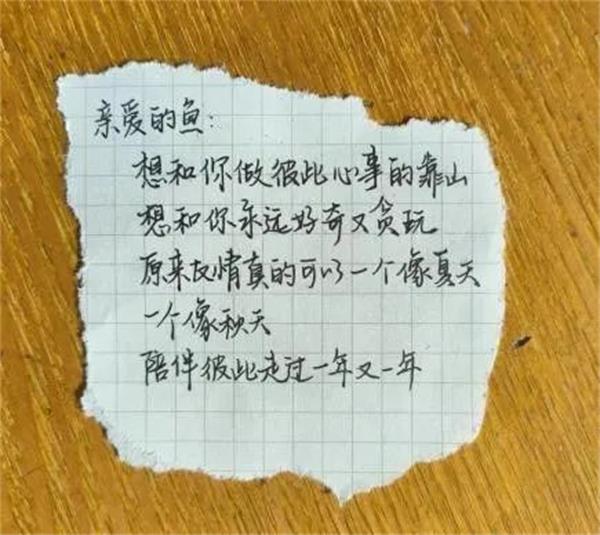 亲爱的鱼:
想和你做彼此心事的靠山
想和你永远好奇又贪玩
原来友情真的可以一个像夏天
一个像秋天
陪伴彼此走过一年又一年